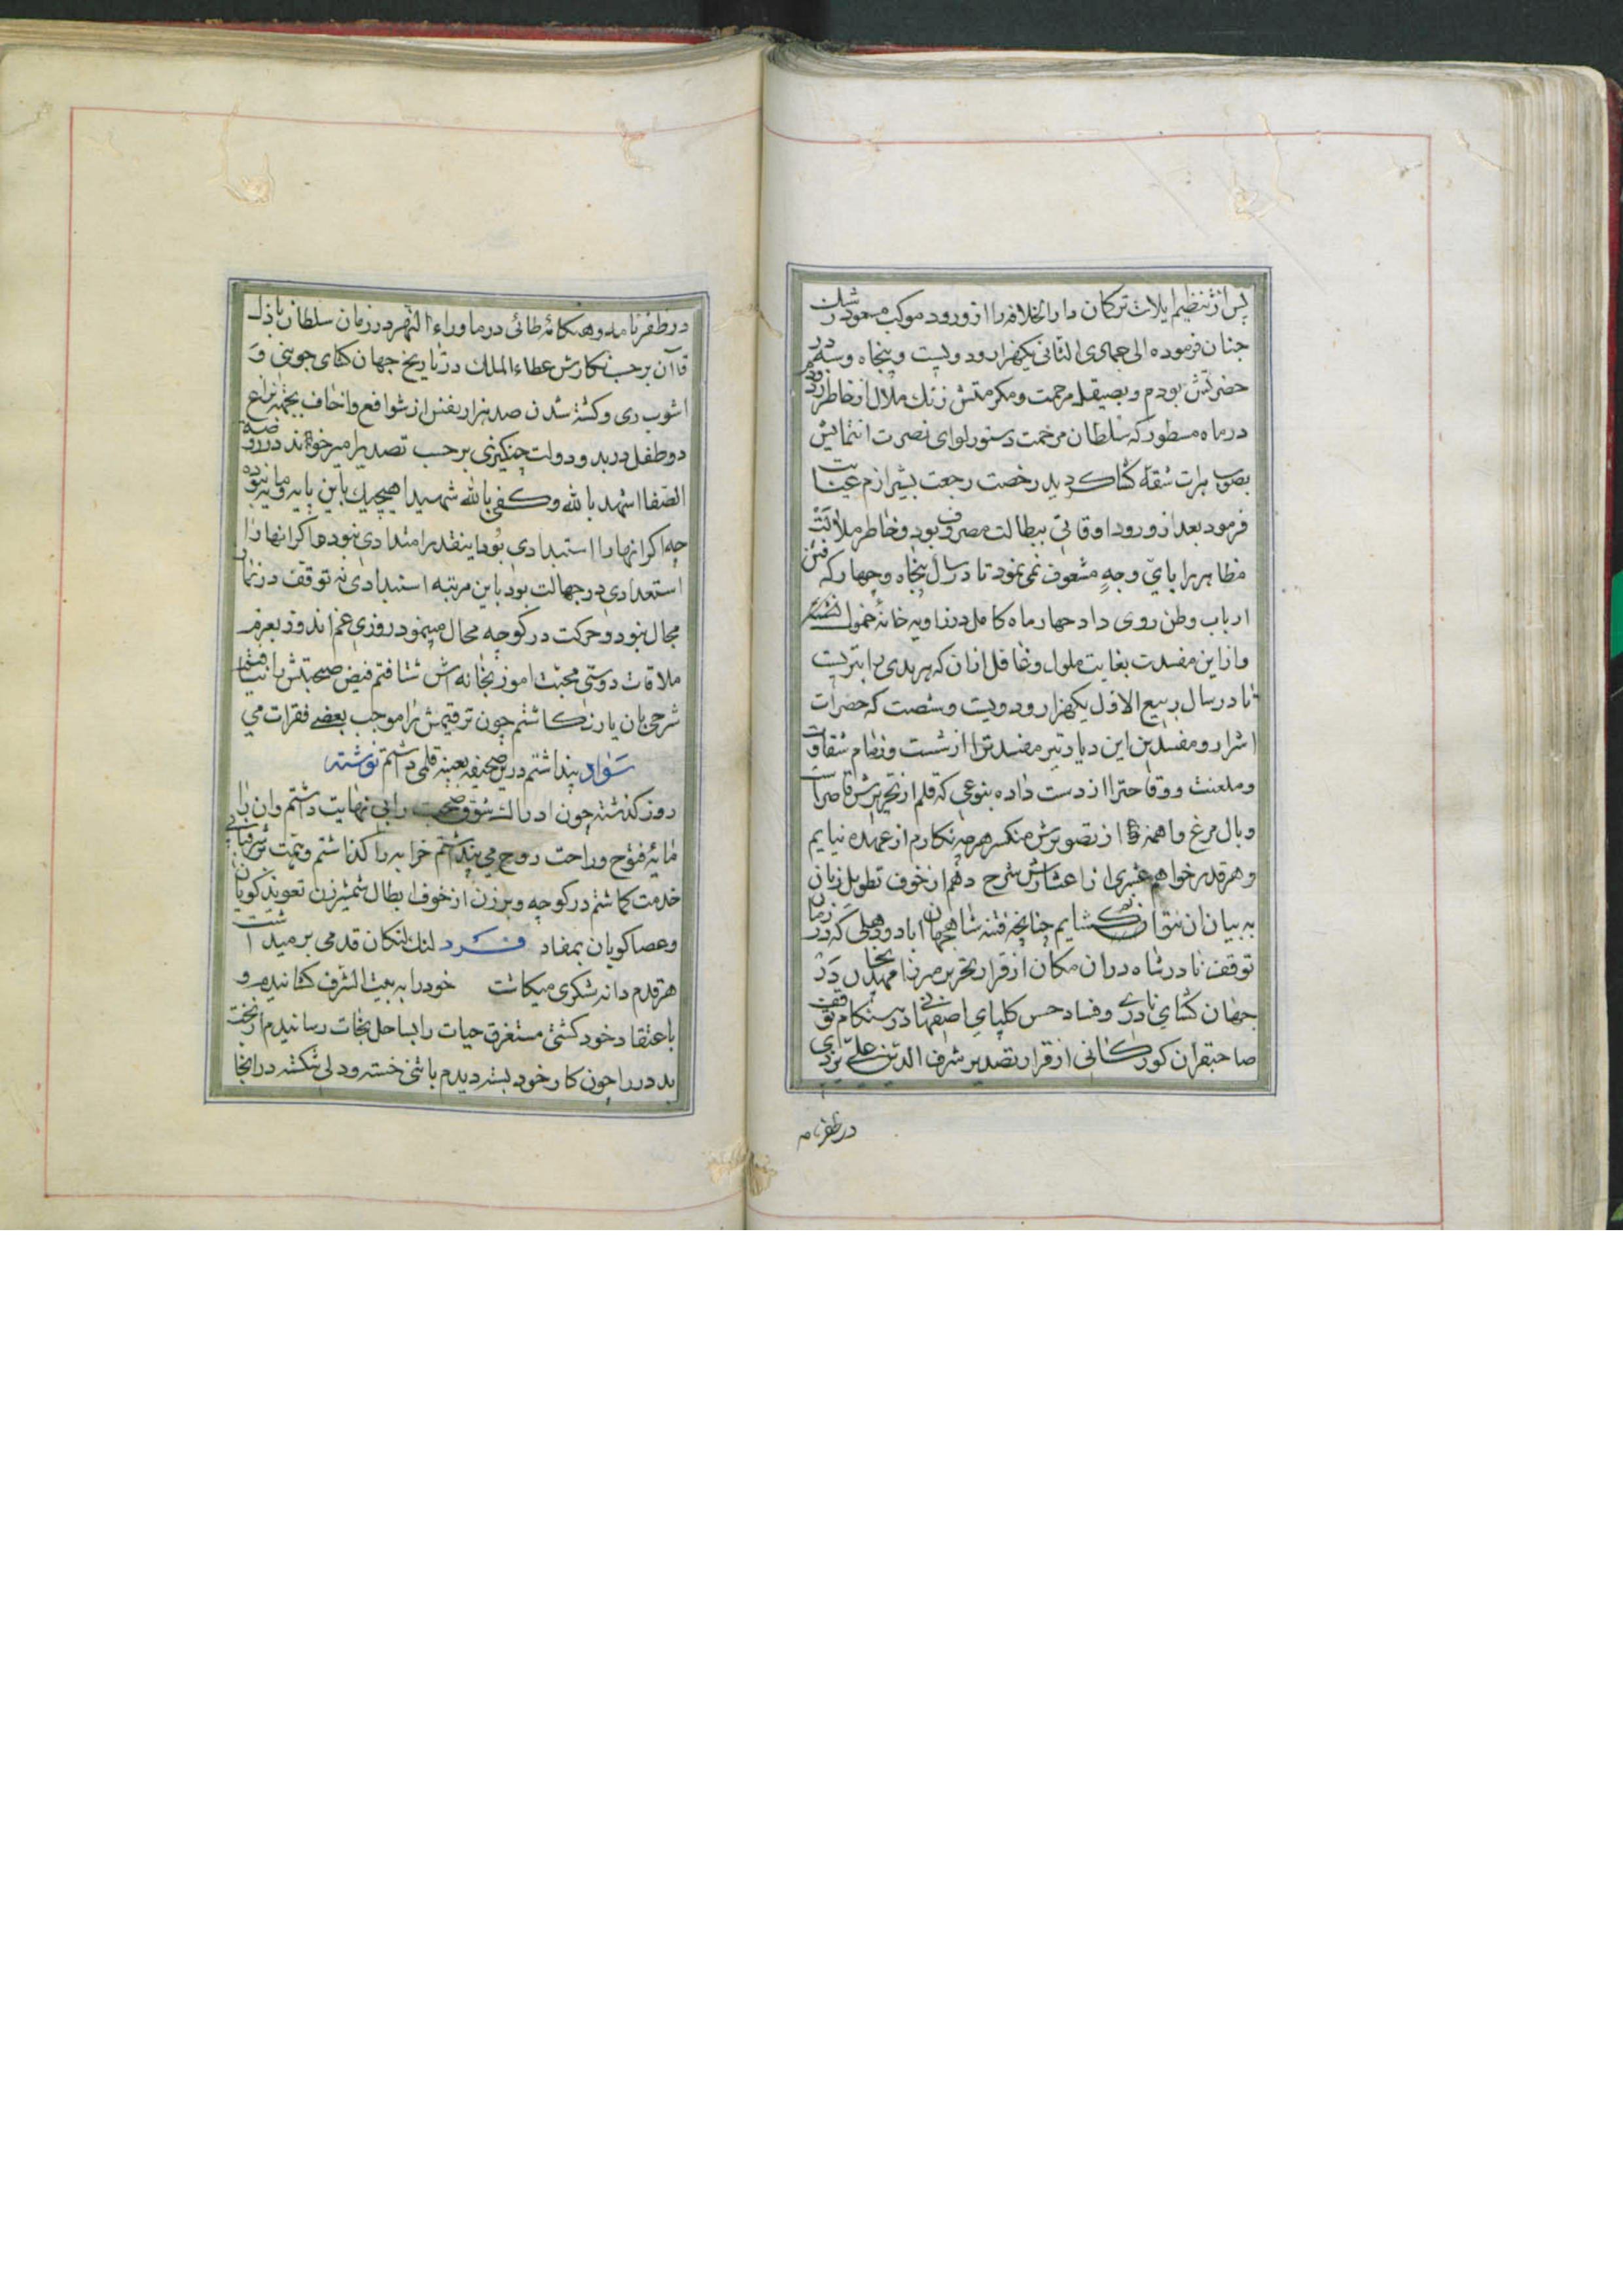 پس از تنظیم ایلات ترکمان دار الخلافه را از ورود موکب مسعود رشک
جنان فرموده الی جمادی الثانی یکهزار و دویست و پنجاه و سه در
حضرتش بودم و بصیقل مرحمت و مکرمتش زنک ملال از خاطر
در ماه مسطور که سلطان مرحمت دستور لوای نصرت انتمایش
بصوب هرات شقه کشا کردید رخصت رجعت بشیرازم عنایت
فرمود بعد از ورود اوقاتی ببطالت مصروف بود و خاطر ملالت
مظاهر را بایّ وجهٍ مشعوف نمی نمود تا در سال پنجاه و چهار که فتن
ارباب وطن روی داد چهار ماه کامل در زاویه خانهٔ خمول
و از این مفسدت بغایت ملول و غافل از ان که هر بدی را بتریست
تا در سال ربیع الاول یکهزار و دویست و شصت که حضرات
اشرار و مفسدین این دیار تیر مفسدترا از شست و زمام شقاوت
و ملعنت و وقاحترا از دست داده بنوعی که قلم از تحریرش قاصر است
و بال مرغ واهمه از تصویرش منکسر هر چه نکارم از عهده نیایم
و هر قدر خواهم عشری از اعشارش شرح دهم از خوف تطویل زبان
به بیان ان نتوانم کشایم چنانچه فتنه شاهجهان اباد و دهلی که در زمان
توقف نادر شاه در ان مکان از قرار تحریر میرزا مهدیخان در
جهان کشای نادری و فساد حسن کلپای اصفهانی در هنکام توقف
صاحبقران کورکانی از قرار تصدیر شرف الدین علی یزدی
در ظفرنامه
در ظفرنامه و هنکامهٔ طائی در ماوراء النهر در زمان سلطان باذل
قاآن بر حسب نکارش عطاء الملک در تاریخ جهان کشای جوینی و
اشوب ری و کشته شدن صد هزار نفس از شوافع و احناف بجهة نزاع
دو طفل در بدو دولت چنکیزی بر حسب تصدیر امیر خواند در روضة
الصّفا اشهد بالله و کفی بالله شهیدا هیچیک باین پایه و مایه نبوده
چه اکر انها را استبدادی بود اینقدر امتدادی نبود و اکر انها را
استعدادی در جهالت بود باین مرتبه استبدادی نه توقف در زمان
مجال نبود و حرکت در کوچه محال مینمود روزی غم اندوز بعزم
ملاقات دوستی محبت اموز بخانه اش شتافتم فیض صحبتش را نیافتم
شرحی بان یار نکاشتم چون ترقیمش را موجب بعضی فقرات می
پنداشتم درین صحیفه بعینه قلمی داشتم سواد نوشته
روز کذشته چون ادراک شوق صحبت را بی نهایت داشتم و ان را
مایهٔ فتوح و راحت روح می پنداشتم خرابه را کذاشتم و همت
خدمت کماشتم در کوچه و برزن از خوف ابطال شمشیر زن تعویذ کویان
و عصا کوبان بمفاد فرد لنک لنکان قدمی بر میداشت
هر قدم دانه شکری میکاشت خود را به بیت الشرف کشانیدم و
باعتقاد خود کشتی مستغرق حیات را بساحل نجات رسانیدم از بخت
بد در را چون کار خود بسته دیدم با تنی خسته و دلی شکسته در انجا